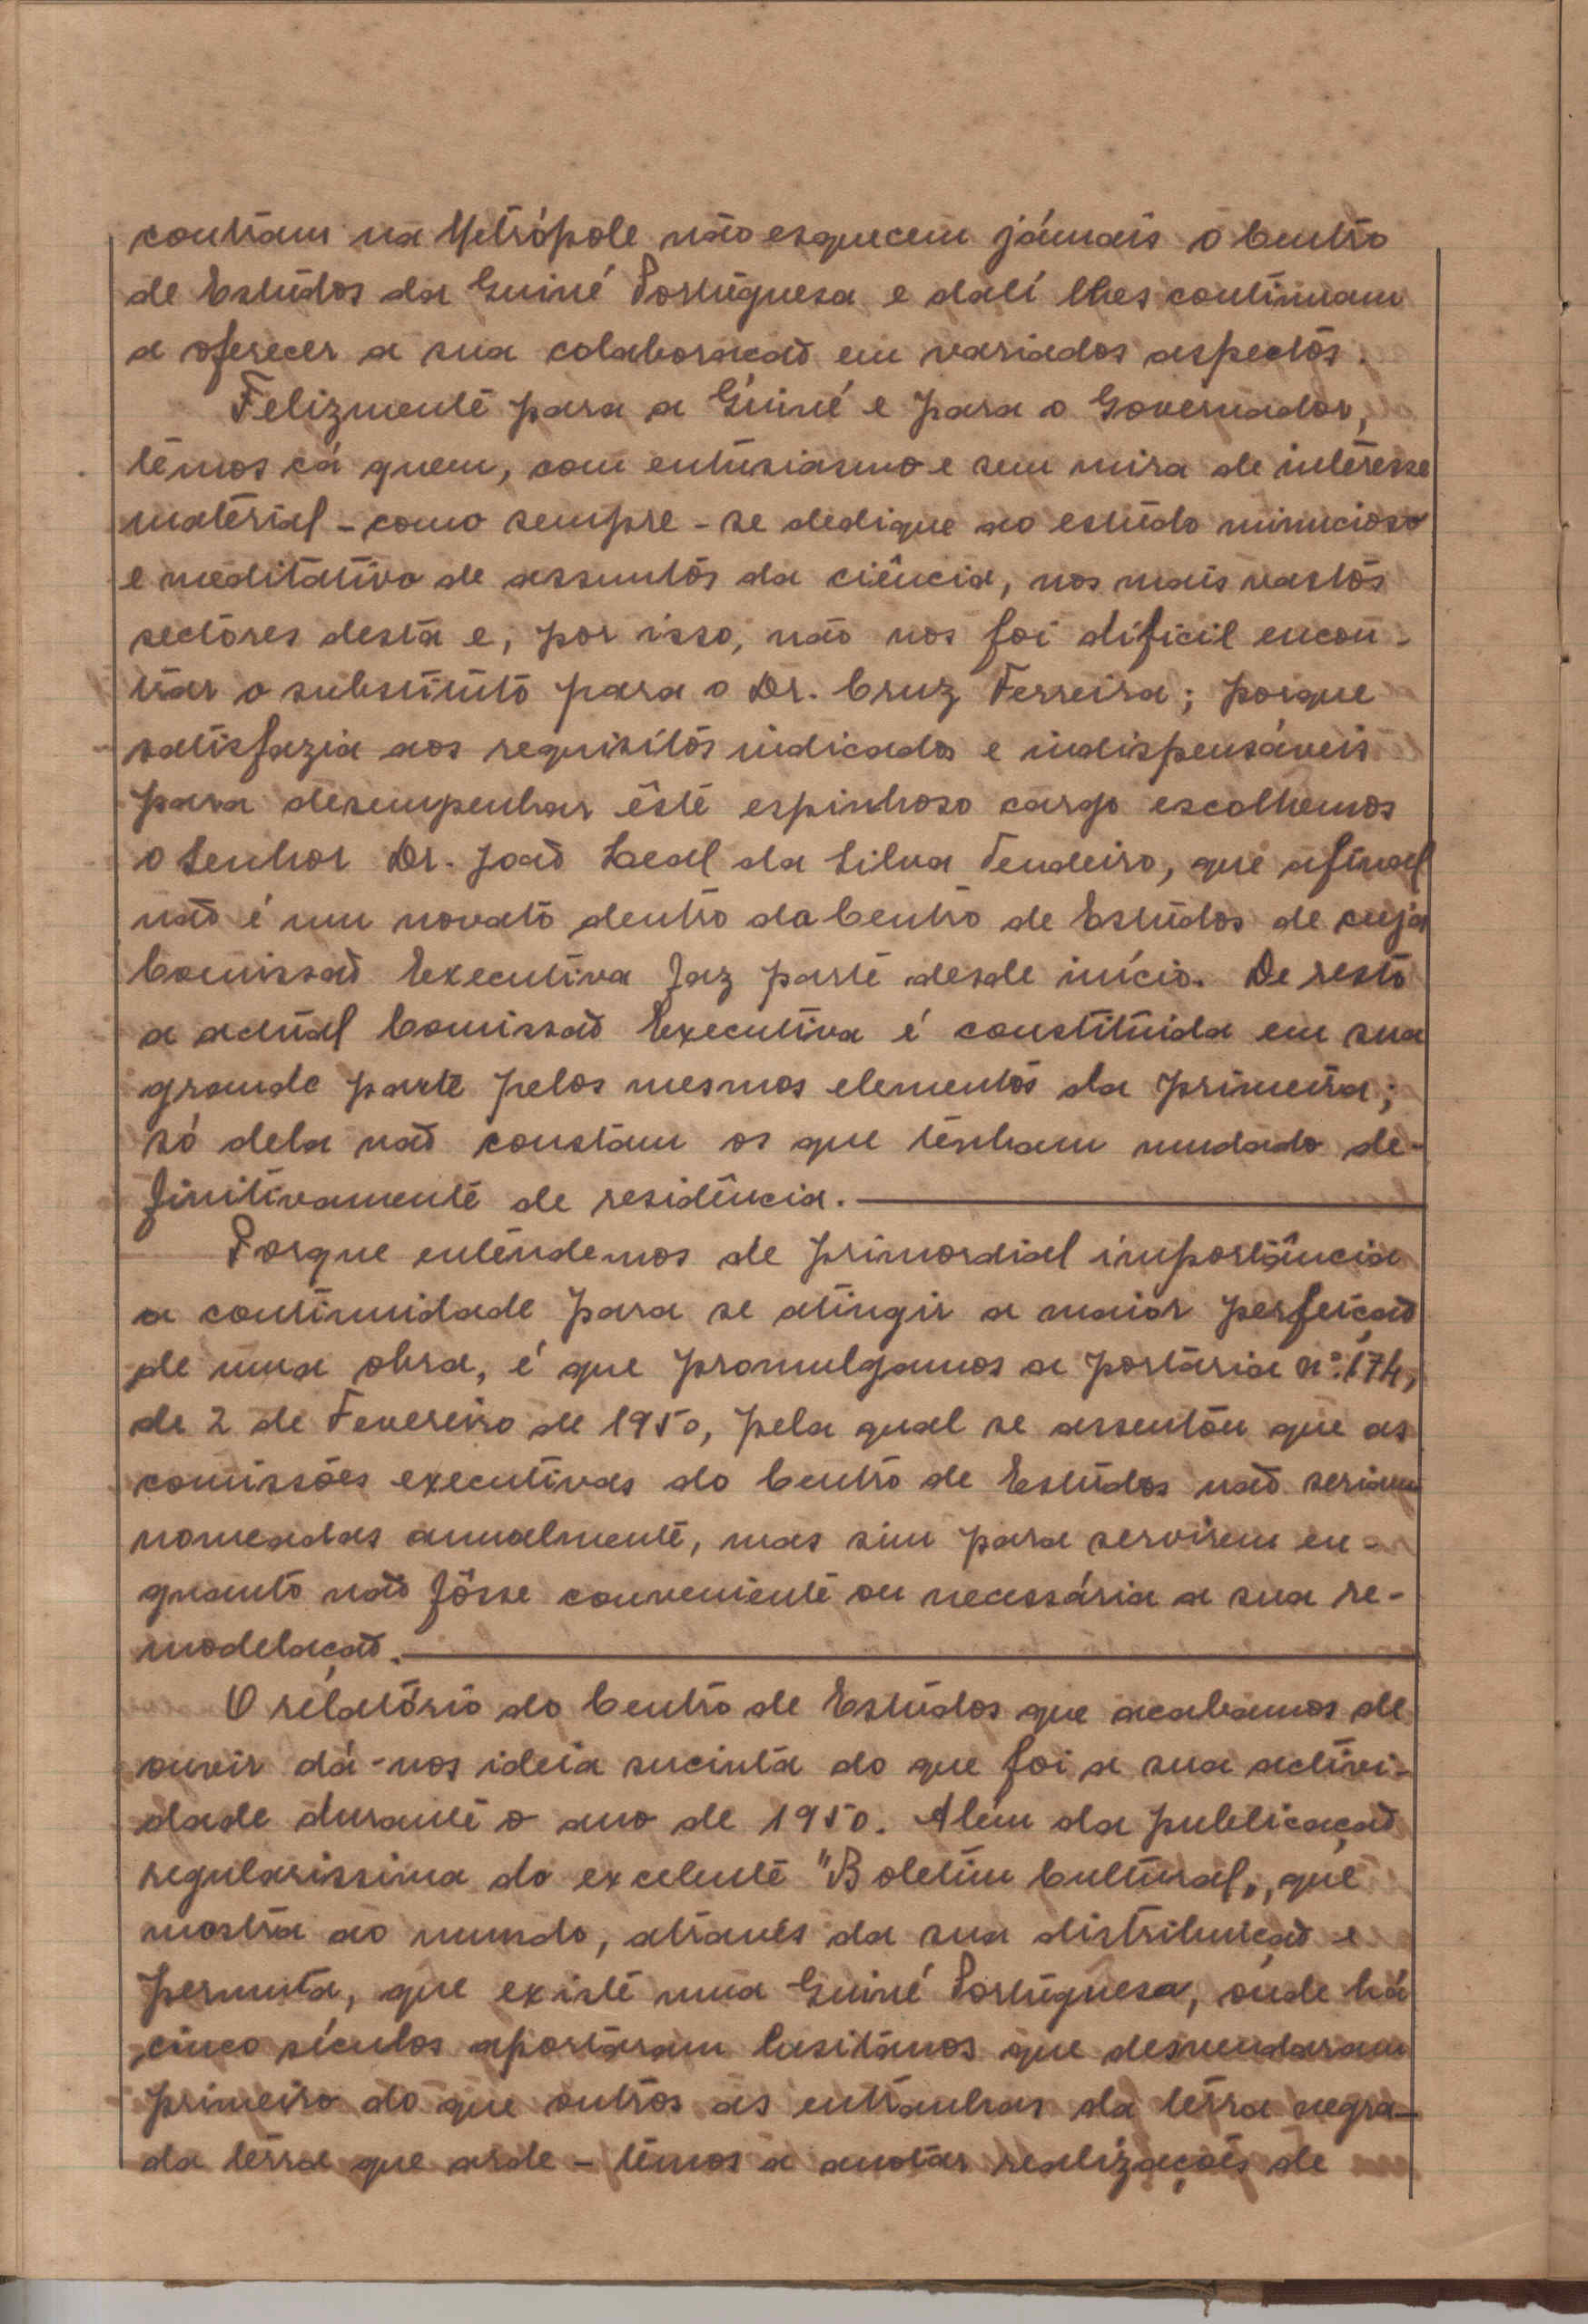 contram na Metrópole não esquecem jámais o Centro
de Estudos da Guiné Portuguesa e dalí lhes continuam
a oferecer a sua colaboração em variados aspectos.
Felizmente para a Guiné e para o Governador,
temos cá quem, com entusiasmo e sem mira de interesse
material - como sempre - se dedique ao estudo minucioso
e meditativo de assuntos da ciência, nos mais vastos
sectores desta e, por isso, não nos foi dificil encon-
trar o substituto para o Dr. Cruz Ferreira; porque
satisfazia aos requisitos indicados e indispensáveis
para desempenhar êste espinhoso cargo escolhemos
o Senhor Dr. João Leal da Silva Tendeiro, que afinal
não é um novato dentro do Centro de Estudos de cuja
Comissão Executiva faz parte desde início. De resto
a actual Comissão Executiva é constituida em sua
grande parte pelos mesmos elementos da primeira;
só dela não constam os que tenham mudado de-
finitivamente de residência.
Porque entendemos de primordial importância
a continuidade para se atingir a maior perfeição
de uma obra, é que promulgamos a portaria nº. 174,
de 2 de Fevereiro de 1950, pela qual se assentou que as
comissões executivas do Centro de Estudos não seriam
nomeadas anualmente, mas sim para servirem en-
quanto não fôsse conveniente ou necessária a sua re-
modelação.
O relatório do Centro de Estudos que acabamos de
ouvir dá-nos ideia sucinta do que foi a sua activi-
dade durante o ano de 1950. Além da publicação
regularissima do excelente "Boletim Cultural„, que
mostra ao mundo, através da sua distribuição e
permuta, que existe uma Guiné Portuguesa, onde há
cinco séculos aportaram lusitanos que desvendaram
primeiro do que outros as entranhas da terra negra—
da terra que arde - temos a anotar realizações de